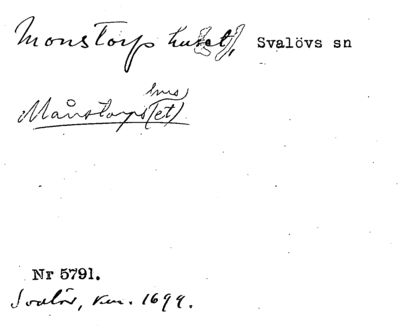 Monstorp huset, Svalövs sn
hus
Månstorps(et)
Nr 5791.
Svalöv, Km. 1699.